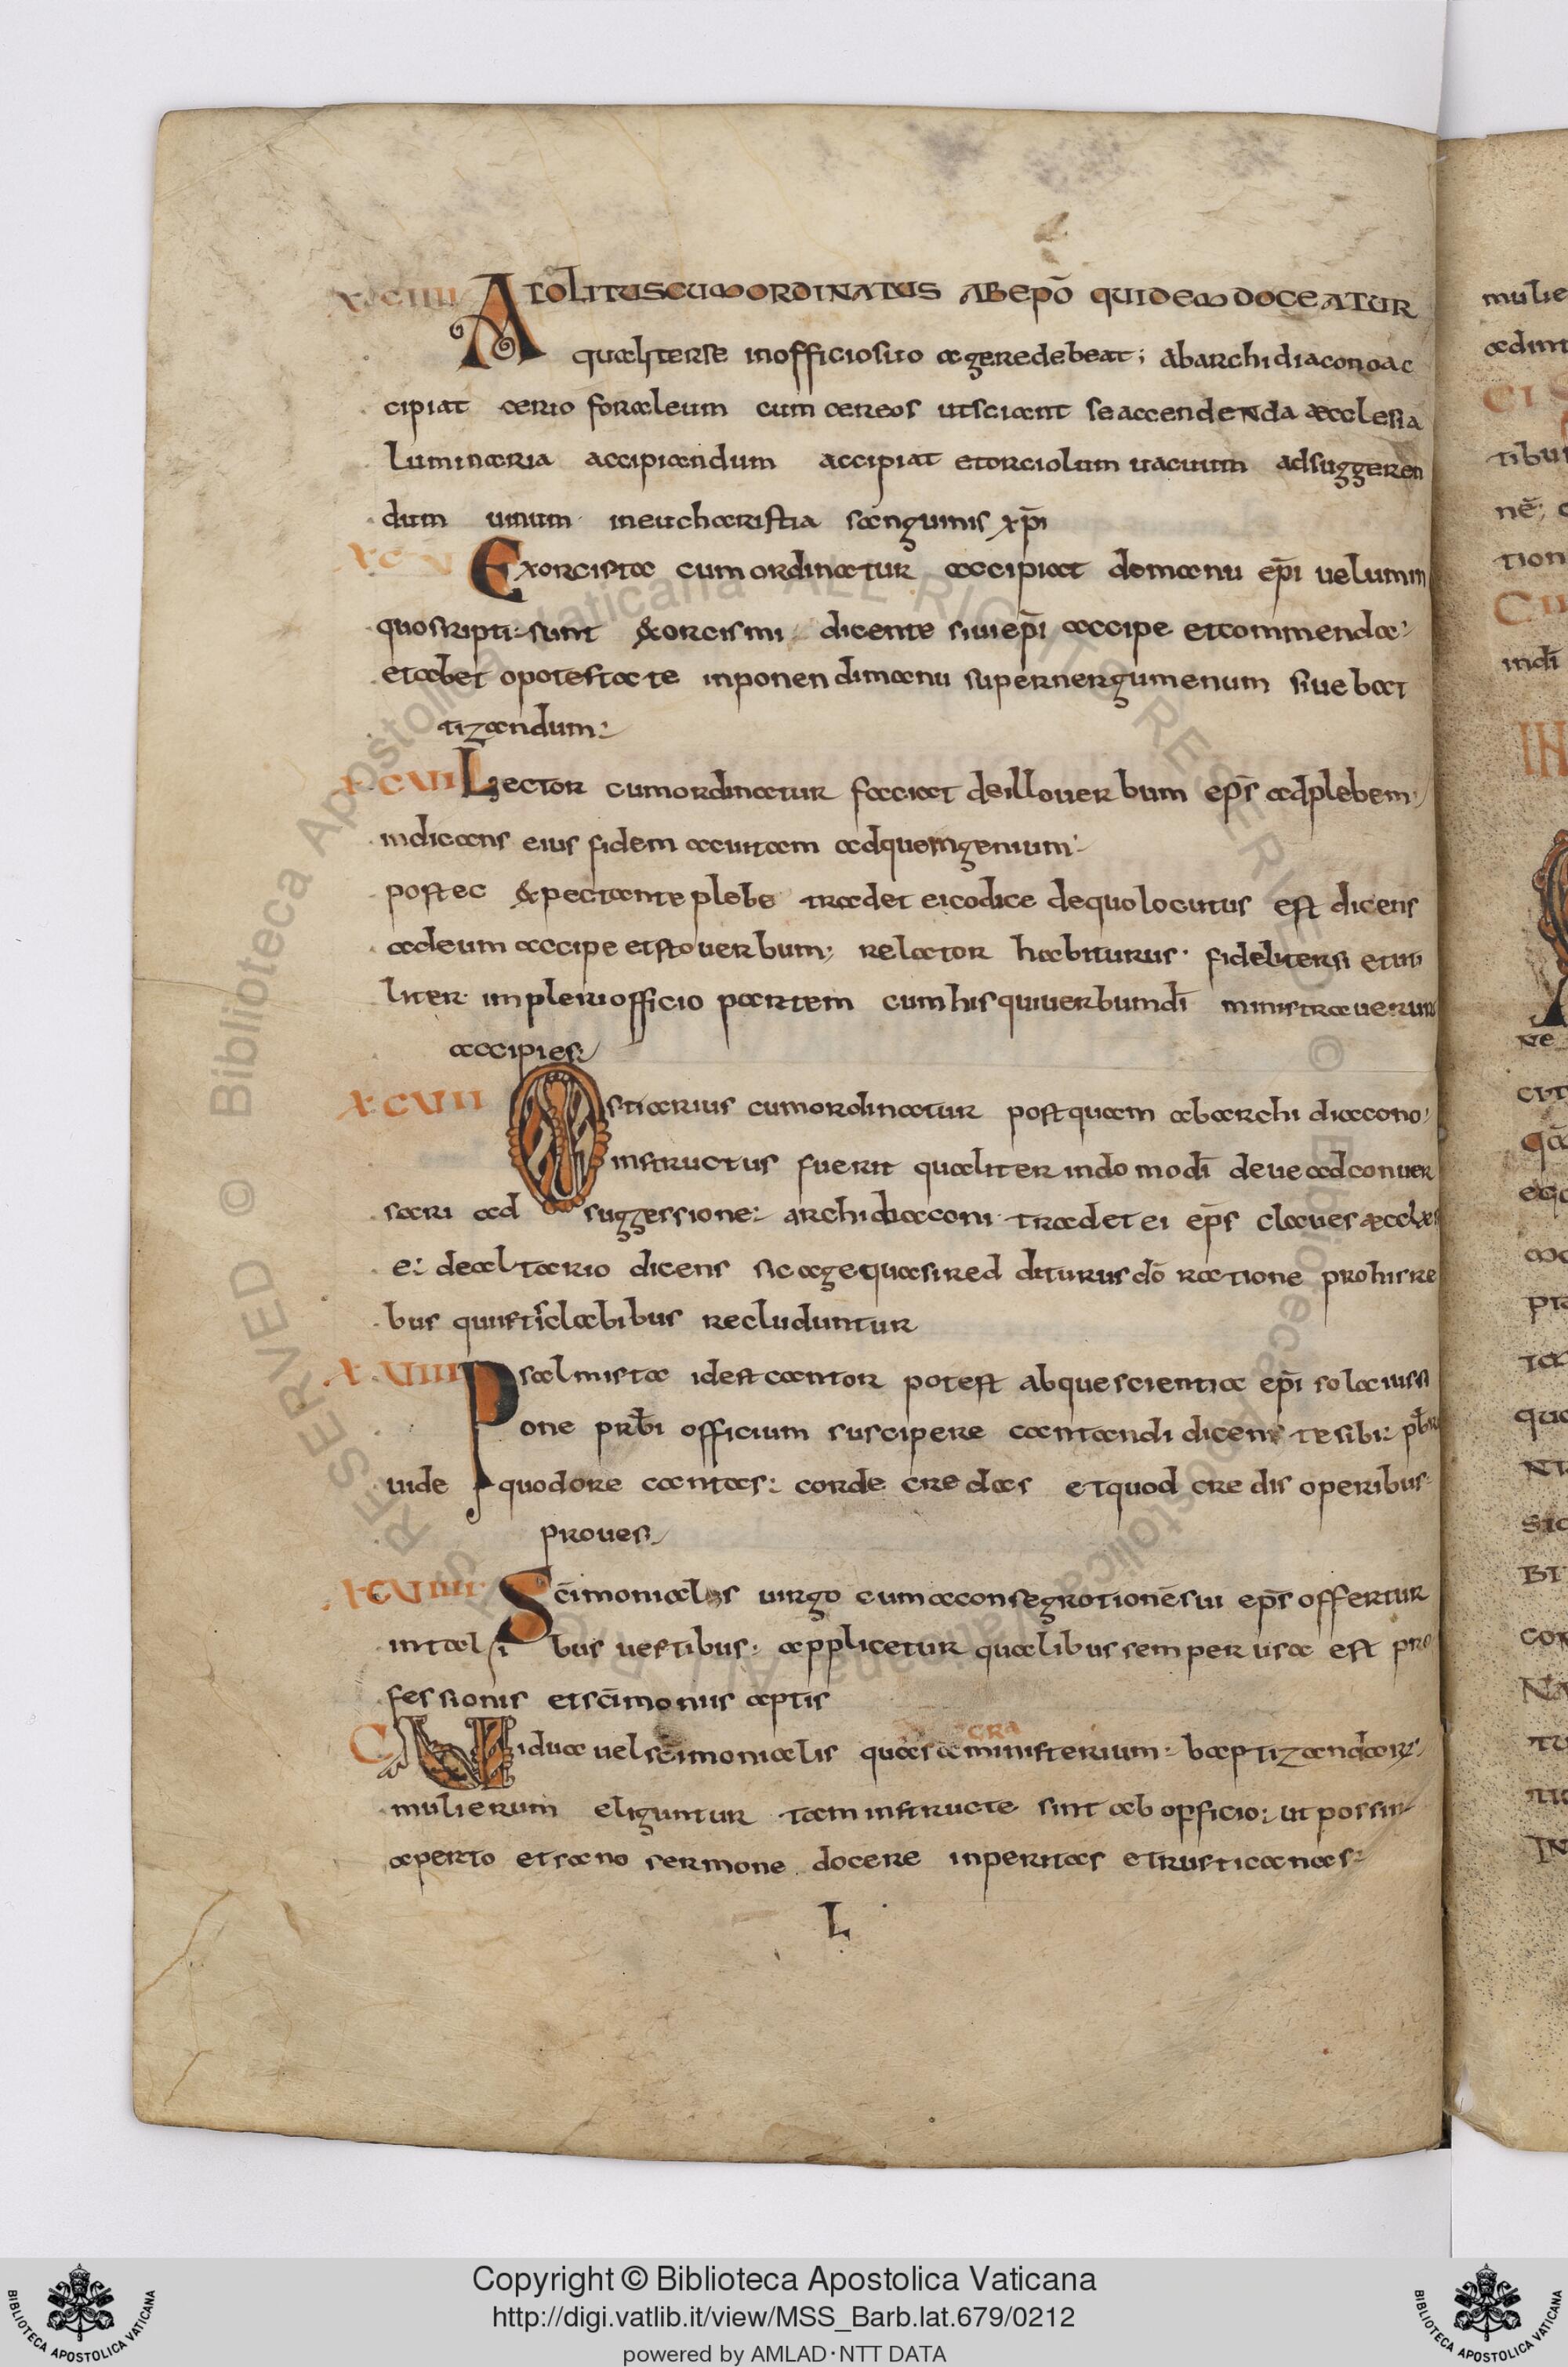 XCIIII ATOLITUS CUM ORDINATUS AB EPŌ QUIDEM DOCEATUR
qualiter se in officio suo agere debeat; ab archidiacono ac
cipiat cerio foraleum cum cereos ut sciant se accendenda æcclesia
luminaria accipiandum accipiat et orciolum uacuum ad suggeren
dum uinum in eucharistia sanguinis xp̄i
XCV Exorcista cum ordinatur accipiat de manu ep̄i uelum in
quo scripti: sunt exorcismi dicente siui ep̄i accipe et commenda:
et abet opotestate inponendi manu super nergumenum siue bact
tizandum:
XCVI Lector cum ordinatur faciat de illo uerbum ep̄s ad plebem
indicans eius fidem ac uitam adque ingenium:
post ec expectante plebe tradet ei codice de quo locutus est dicens
ad eum accipe et sto uerbum; relactor habiturus· fideliter si et uti
liter impleri officio partem cum his qui uerbum dī ministrauerun
accipies:
XCVII Ostiarius cum ordinatur post quam ab archidiacono
instructus fuerit qualiter in domo dī deuead conuer
sari ad suggessione: archidiaconi tradet ei ep̄s claues æccles
e: de altario dicens sic age quasi redditurus dō ratione pro his re
bus qui istīs clabibus recluduntur
XCVIII Psalmista id est cantor potest abque scientia ep̄i sola iussi
one prb̄i officium suscipere cantandi dicens te sibi: pb̄r
uide quod ore cantas: corde credas et quod credis operibus
proues
XCVIIII Sc̄imonialis uirgo cum a consegrationē sui ep̄s offertur
in talibus uestibus: applicetur qualibus semper usa est pro
fessionis et sc̄imoniis aptis
C Uiduæ uel sc̄imonialis quas a ministerium: baptizandar
CRA
mulierum eliguntur tam instructe sint ab officio: ut possin
aperto et sano sermone docere inperitas et rusticanas:
L
mulie
adim
CI
tibus
nē;
tion
CII
indī
IN
Copyright © Biblioteca Apostolica Vaticana
http://digi.vatlib.it/view/MSS_Barb.lat.679/0212
powered by AMLAD·NTT DATA
BIBLIOTECA APOSTOLICA VATICANA
BIBLIOTECA APOSTOLICA VATICANA